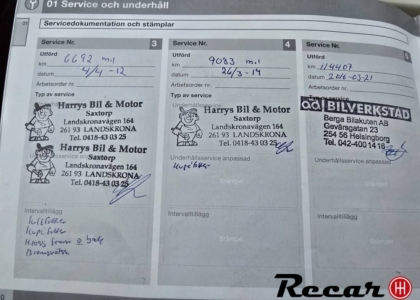 01 Service och underhåll
Servicedokumentation och stämplar
Service Nr. 3
Utförd
km 6692 mil
datum 4/4 -12
Arbetsorder nr.
Typ av service
Harrys Bil & Motor
Saxtorp
Landskronavägen 164
261 93 LANDSKRONA
Tel. 0418-43 03 25
Harrys Bil & Motor
Saxtorp
Landskronavägen 164
261 93 LANDSKRONA
Tel. 0418-43 03 25
Intervalltillägg
Luftfilter
Kupéfilter
Bromsvätska
Service Nr. 4
Utförd
km 9083 mil
datum 26/3-14
Arbetsorder nr.
Typ av service
Harrys Bil & Motor
Saxtorp
Landskronavägen 164
261 93 LANDSKRONA
Tel. 0418-43 03 25
Underhållsservice anpassad
Kupéfilter
Intervalltillägg
Service Nr.
Utförd
km 114407
datum 2016-03-21
Arbetsorder nr.
BILVERKSTAD
Berga Bilakuten AB
Gevärsgatan 23
254 66 Helsingborg
Tel. 042-400 14 16
Underhållsservice anpassad
Intervalltillägg
Recar